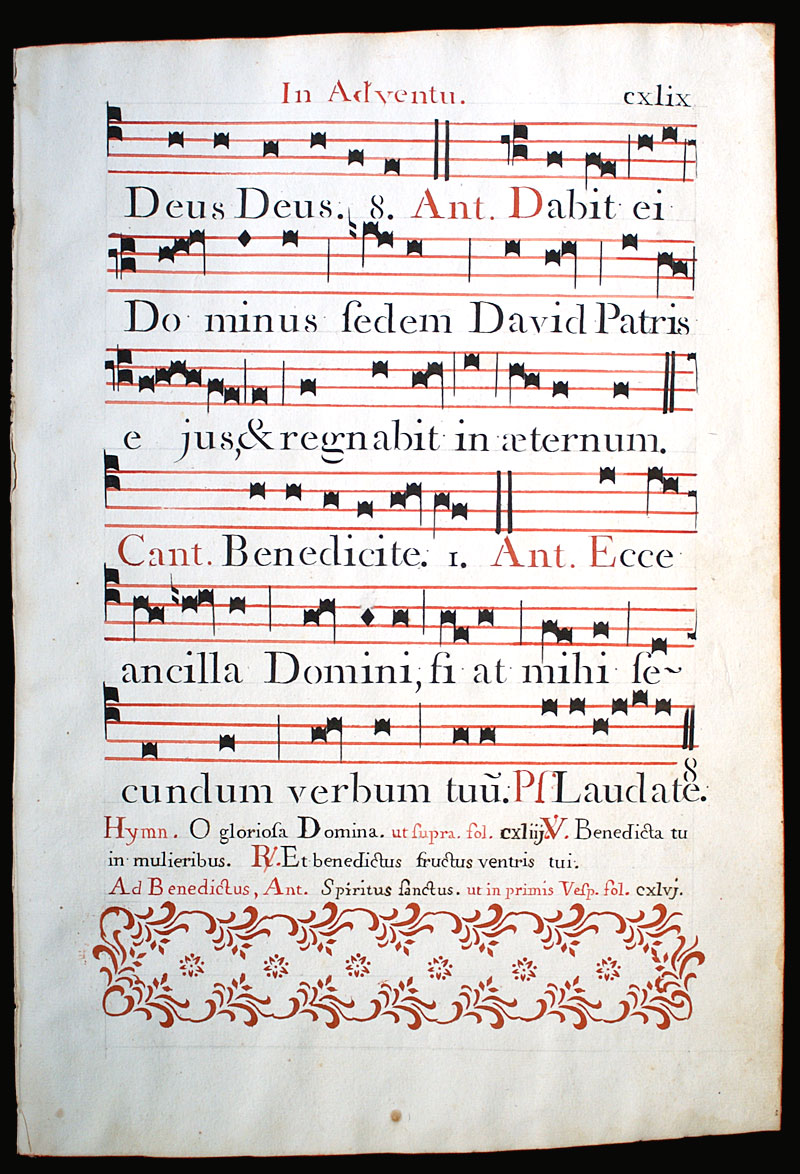 In Adventu. cxlix
Deus Deus. 8. Ant. Dabit ei
Do minus ſedem David Patris
e jus,& regnabit in æternum.
Cant. Benedicite. 1. Ant. Ecce
ancilla Domini, fi at mihi ſe~
cundum verbum tuũ. Pſ Laudate. 8
Hymn. O glorioſa Domina. ut ſupra. fol. cxliij. ℣. Benedicta tu
in mulieribus. ℟. Et benedictus fructus ventris tui.
Ad Benedictus, Ant. Spiritus ſanctus. ut in primis Veſp. fol. cxlvj.